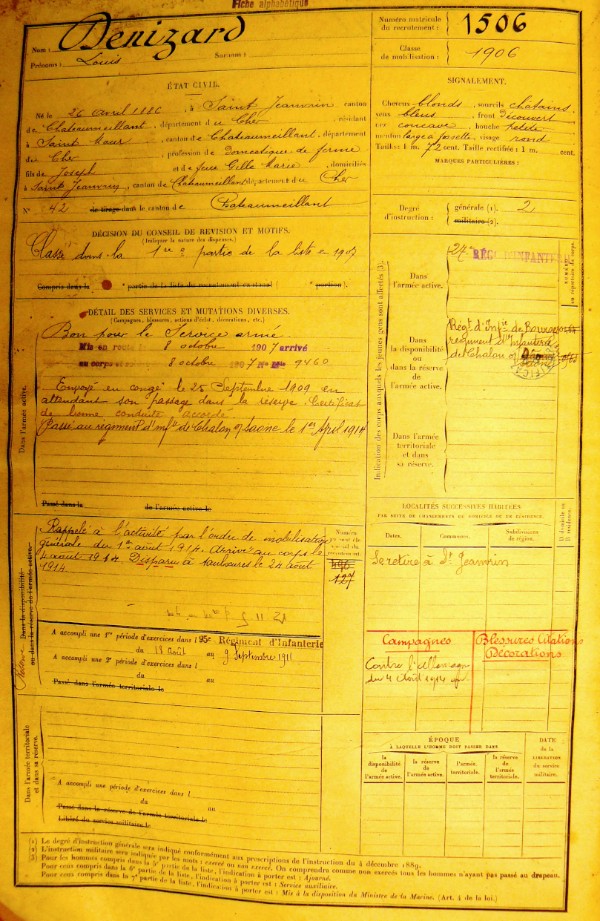 Fiche alphabétique
Nom : Denizard
Prénoms : Louis Surnoms :
Numéro matricule du recrutement : 1506
Classe de mobilisation : 1906
ÉTAT CIVIL.
Né le 26 avril 1886, à Saint Jeanvrin canton
de Chateaumeillant, département du Cher, résidant
à Saint Maur, canton de Chateaumeillant, département
du Cher, profession de Domestique de ferme
fils de Joseph et de feue Gille Marie, domiciliés
à Saint Jeanvrin, canton de Chateaumeillant, département du Cher
N° 42 de tirage dans le canton de Chateaumeillant
SIGNALEMENT.
Cheveux blonds, sourcils chatains
yeux bleus, front découvert
nez concave, bouche petite
menton large fossette, visage rond
Taille : 1 m. 72 cent. Taille rectifiée : 1 m. cent.
MARQUES PARTICULIÈRES :
Degré d'instruction : générale (1). 2
militaire (2).
DÉCISION DU CONSEIL DE REVISION ET MOTIFS.
(Indiquer la nature des dispenses.)
Classé dans la 1re partie de la liste en 1907
Compris dans la partie de la liste du recrutement cantonal ( portion ).
DÉTAIL DES SERVICES ET MUTATIONS DIVERSES.
(Campagnes, blessures, actions d'éclat, décorations, etc.)
Bon pour le Service armé
Mis en route le 8 octobre 1907 arrivé
au corps le 8 octobre 1907 N° Mle 9460
Envoyé en congé le 25 Septembre 1909 en
attendant son passage dans la réserve. Certificat
de bonne conduite accordé.
Passé au régiment d'Infie de Chalon s/ Saone le 1er Avril 1914
Dans l'armée active.
Passé dans la
de l'armée active le
Indication des corps auxquels les jeunes gens sont affectés (3).
Dans l'armée active.
RÉGT D'INFANTERIE
Dans la disponibilité ou dans la réserve de l'armée active.
Régt d'Infie de Bourges
régiment d'Infanterie
de Chalon s/
Dans l'armée territoriale et dans sa réserve.
Dans la disponibilité ou dans la réserve de l'armée active.
Rappelé à l'activité par l'ordre de mobilisation
générale du 1er août 1914. Arrivé au corps le
4 août 1914. Disparu à Saulxures le 24 août
1914
127
A accompli une 1re période d'exercices dans l 95e Régiment d'Infanterie
du 18 Août au 9 Septembre 1911
A accompli une 2e période d'exercices dans l
du au
Passé dans l'armée territoriale le
LOCALITÉS SUCCESSIVES HABITÉES
PAR SUITE DE CHANGEMENTS DE DOMICILE OU DE RÉSIDENCE.
Dates. Communes. Subdivisions de région. D domicile ou R résidence.
Se retire à St Jeanvrin
Campagnes
Contre l'Allemagne
du 4 Août 1914 au
Blessures Citations
Décorations
Dans l'armée territoriale et dans sa réserve.
A accompli une période d'exercices dans l
du au
Passé dans la réserve de l'armée territoriale le
Libéré du service militaire le
ÉPOQUE
À LAQUELLE L'HOMME DOIT PASSER DANS
la disponibilité de l'armée active. la réserve de l'armée active. l'armée territoriale. la réserve de l'armée territoriale.
DATE de la LIBÉRATION du service militaire.
(1) Le degré d'instruction générale sera indiqué conformément aux prescriptions de l'instruction du 4 décembre 1889.
(2) L'instruction militaire sera indiquée par les mots : exercé ou non exercé. On comprendra comme non exercés tous les hommes n'ayant pas passé au drapeau.
(3) Pour les hommes compris dans la 5e partie de la liste, l'indication à porter est : Ajourné.
Pour ceux compris dans la 6e partie de la liste, l'indication à porter est : Service auxiliaire.
Pour ceux compris dans la 7e partie de la liste, l'indication à porter est : Mis à la disposition du Ministre de la Marine. (Art. 4 de la loi.)